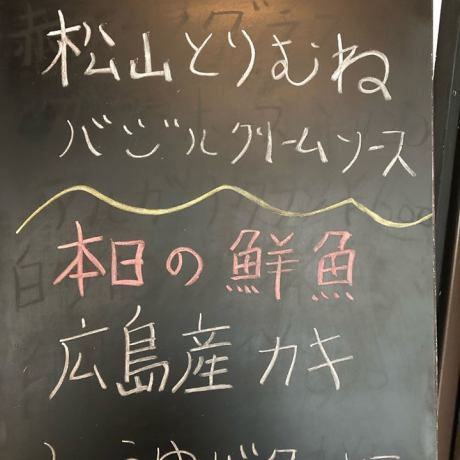 松山とりむね
バジルクリームソース
本日の鮮魚
広島産カキ